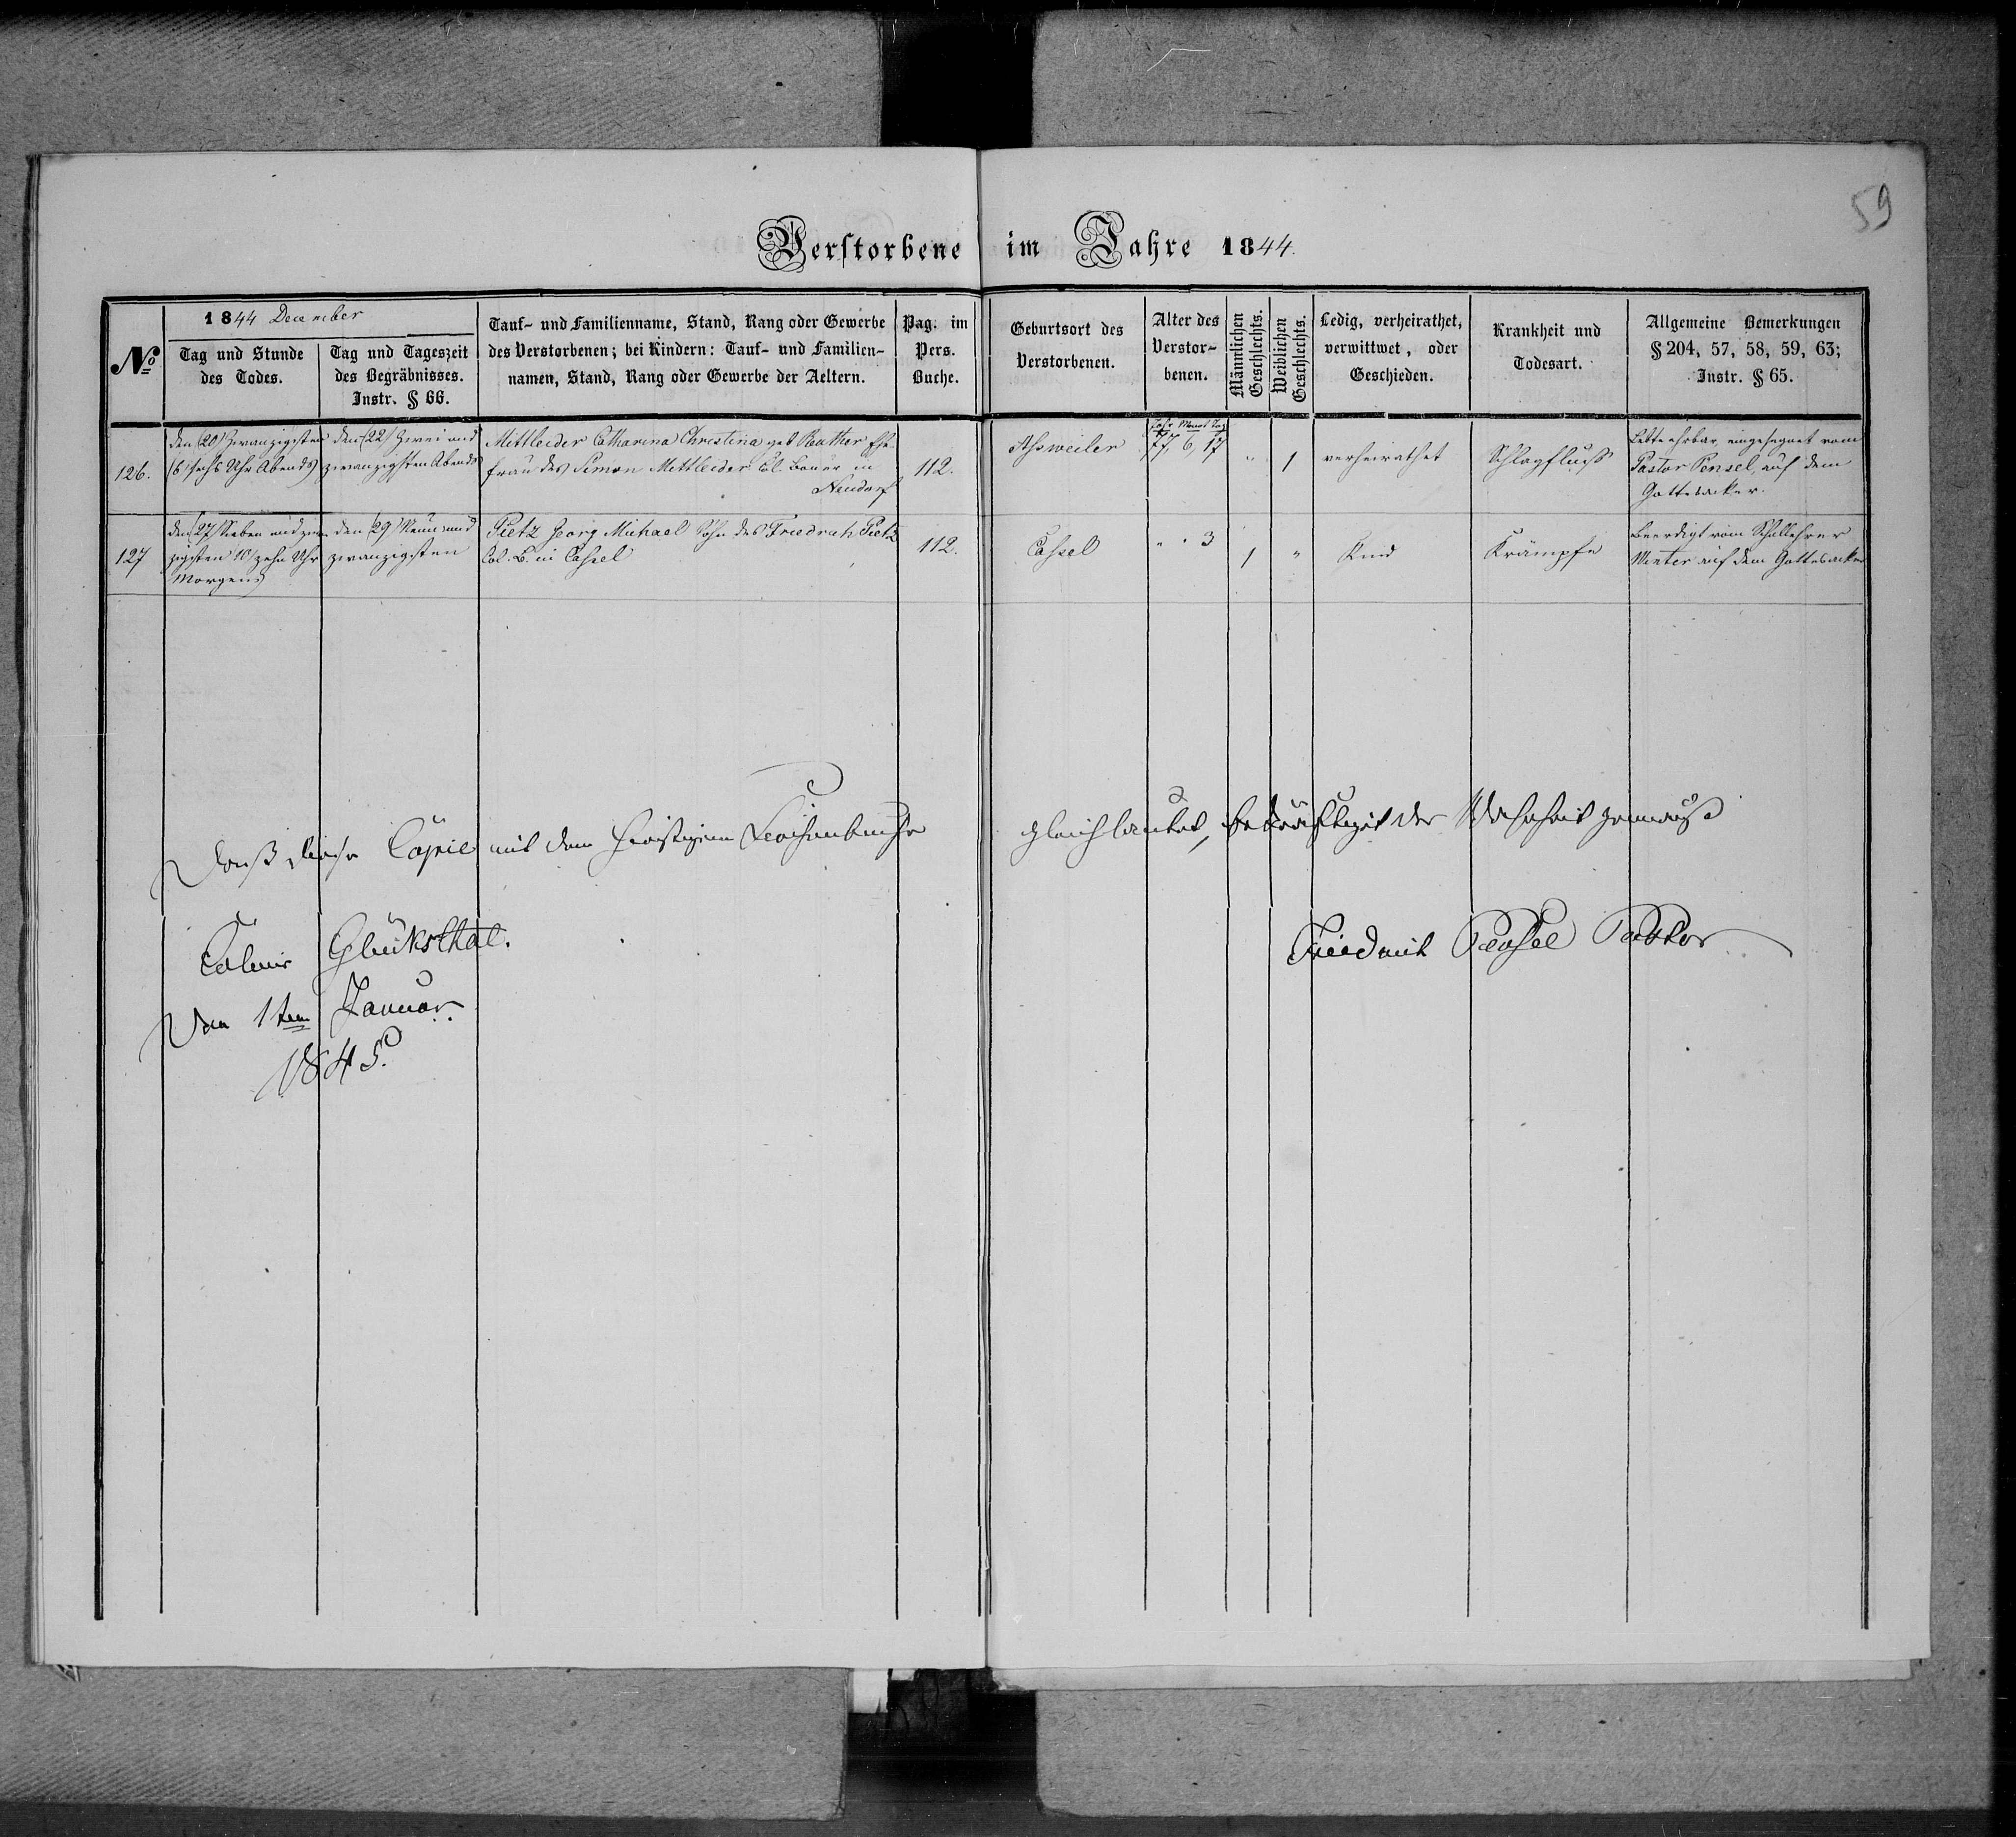 59
Verstorbene im Jahre 1844.
1844 December
№
Tag und Stunde
des Todes.
Tag und Tageszeit
des Begräbnisses.
Instr. § 66.
Tauf- und Familienname, Stand, Rang oder Gewerbe
des Verstorbenen; bei Kindern: Tauf- und Familien-
namen, Stand, Rang oder Gewerbe der Aeltern.
Pag. im
Pers.
Buche.
Geburtsort des
Verstorbenen.
Alter des
Verstor-
benen.
Männlichen
Geschlechts.
Weiblichen
Geschlechts.
Ledig, verheirathet,
verwittwet, oder
Geschieden.
Krankheit und
Todesart.
Allgemeine Bemerkungen
§ 204, 57, 58, 59, 63;
Instr. § 65.
126.
den (20) Zwanzigsten
(6) sechs Uhr Abends
den (22) Zwei und
zwanzigsten Abends
Mittleider Catharina Christina geb Reuther Ehe
frau des Simon Mettleider Col. Bauer in
Neudorf
112.
Assweiler
Jahr Monat Tag
77, 6, 17
" 1
verheirathet
Schlagfluss
Lebte ehrbar, eingesegnet vom
Pastor Pensel, auf dem
Gottesacker.
127
den (27) Sieben und zwan
zigsten 10 zehn Uhr
Morgens
den (29) Neun und
zwanzigsten
Pietz Georg Michael Sohn des Friedrich Pietz
Col. B. in Cassel
112.
Cassel
" " 3
1 "
Kind
Krämpfe
Beerdigt vom Schullehrer
Winter auf dem Gottesacker
Daß diese Copie mit dem hiesigen Kirchenbuche gleichlautet, bekräftiget der Wahrheit gemäß
Colonie Glüksthal.
Den 1ten Januar
1845.
Friedrich Pensel Pastor